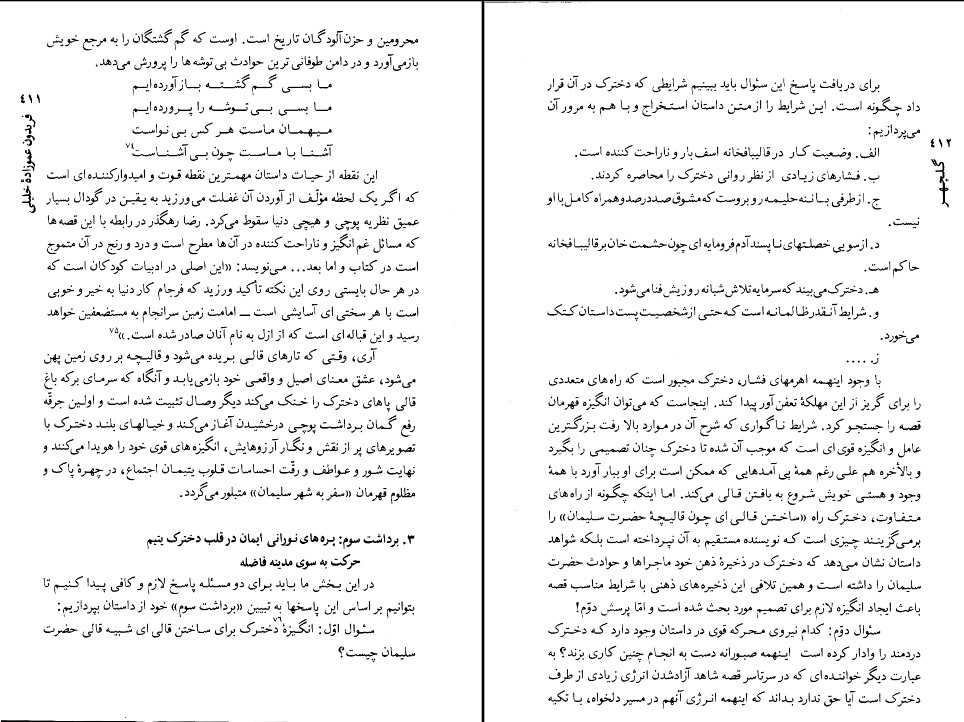 ٤١١
فریدون عموزادهٔ خلیلی
محرومین و حزن‌آلودگان تاریخ است. اوست که گم گشتگان را به مرجع خویش
بازمی‌آورد و در دامن طوفانی ترین حوادث بی توشه ها را پرورش می‌دهد.
ما بسی گم گشته باز آورده ایم
ما بسی بی توشه را پرورده ایم
میهمان ماست هر کس بی نواست
آشنا با ماست چون بی آشناست۷۴
این نقطه از حیات داستان مهمترین نقطه قوت و امیدوارکننده ای است
که اگر یک لحظه مؤلّف از آوردن آن غفلت می ورزید به یقین در گودال بسیار
عمیق نظریه پوچی و هیچی دنیا سقوط می‌کرد. رضا رهگذر در رابطه با این قصه‌ها
که مسائل غم‌انگیز و ناراحت کننده در آن‌ها مطرح است و درد و رنج در آن متموج
است در کتاب و اما بعد... می‌نویسد: «این اصلی در ادبیات کودکان است که
در هر حال بایستی روی این نکته تأکید ورزید که فرجام کار دنیا به خیر و خوبی
است با هر سختی ای آسایشی است ــ امامت زمین سرانجام به مستضعفین خواهد
رسید و این قباله ای است که از ازل به نام آنان صادر شده است.»۷۵
آری، وقتی که تارهای قالی بریده می‌شود و قالیچه بر روی زمین پهن
می‌شود، عشق معنای اصیل و واقعی خود بازمی‌یابد و آنگاه که سرمای برکه باغ
قالی پاهای دخترک را خنک می‌کند دیگر وصال تثبیت شده است و اولین جرقّه
رفع گمان برداشت پوچی درخشیدن آغاز می‌کند و خیالهای بلند دخترک با
تصویرهای پر از نقش و نگار آرزوهایش، انگیزه های قوی خود را هویدا می‌کنند و
نهایت شور و عواطف و رقّت احساسات قلوب یتیمان اجتماع، در چهرهٔ پاک و
مظلوم قهرمان «سفر به شهر سلیمان» متبلور می‌گردد.
۳. برداشت سوم: پره‌های نورانی ایمان در قلب دخترک یتیم
حرکت به سوی مدینه فاضله
در این بخش ما باید برای دو مسئله پاسخ لازم و کافی پیدا کنیم تا
بتوانیم بر اساس این پاسخها به تبیین «برداشت سوم» خود از داستان بپردازیم:
سئوال اوّل: انگیزهٔ دخترک برای ساختن قالی ای شبیه قالی حضرت۷۶
سلیمان چیست؟
٤١٢
گلچهر
برای دریافت پاسخ این سئوال باید ببینیم شرایطی که دخترک در آن قرار
داد چگونه است. این شرایط را از متن داستان استخراج و با هم به مرور آن
می‌پردازیم:
الف. وضعیت کار در قالیبافخانه اسف‌بار و ناراحت کننده است.
ب. فشارهای زیادی از نظر روانی دخترک را محاصره کردند.
ج. از طرفی با ننه حلیمه روبروست که مشوق صددرصد و همراه کامل با او
نیست.
د. از سویی خصلتهای ناپسند آدم فرومایه ای چون حشمت خان بر قالیبافخانه
حاکم است.
هـ. دخترک می‌بیند که سرمایه تلاش شبانه روزیش فنا می‌شود.
و. شرایط آنقدر ظالمانه است که حتی از شخصیت پست داستان کتک
می‌خورد.
ز. .....
با وجود اینهمه اهرمهای فشار، دخترک مجبور است که راه‌های متعددی
را برای گریز از این مهلکهٔ تعفن آور پیدا کند. اینجاست که می‌توان انگیزه قهرمان
قصه را جستجو کرد. شرایط ناگواری که شرح آن در موارد بالا رفت بزرگترین
عامل و انگیزه قوی ای است که موجب آن شده تا دخترک چنان تصمیمی را بگیرد
و بالأخره هم علی رغم همهٔ پی آمدهایی که ممکن است برای او ببار آورد با همهٔ
وجود و هستی خویش شروع به بافتن قالی می‌کند. اما اینکه چگونه از راه‌های
متفاوت، دخترک راه «ساختن قالی ای چون قالیچهٔ حضرت سلیمان» را
برمی‌گزیند چیزی است که نویسنده مستقیم به آن نپرداخته است بلکه شواهد
داستان نشان می‌دهد که دخترک در ذخیرهٔ ذهن خود ماجراها و حوادث حضرت
سلیمان را داشته است و همین تلافی این ذخیره‌های ذهنی با شرایط مناسب قصه
باعث ایجاد انگیزه لازم برای تصمیم مورد بحث شده است و امّا پرسش دوّم!
سئوال دوّم: کدام نیروی محرکه قوی در داستان وجود دارد که دخترک
دردمند را وادار کرده است اینهمه صبورانه دست به انجام چنین کاری بزند؟ به
عبارت دیگر خواننده‌ای که در سرتاسر قصه شاهد آزادشدن انرژی زیادی از طرف
دخترک است آیا حق ندارد بداند که اینهمه انرژی آنهم در مسیر دلخواه، با تکیه